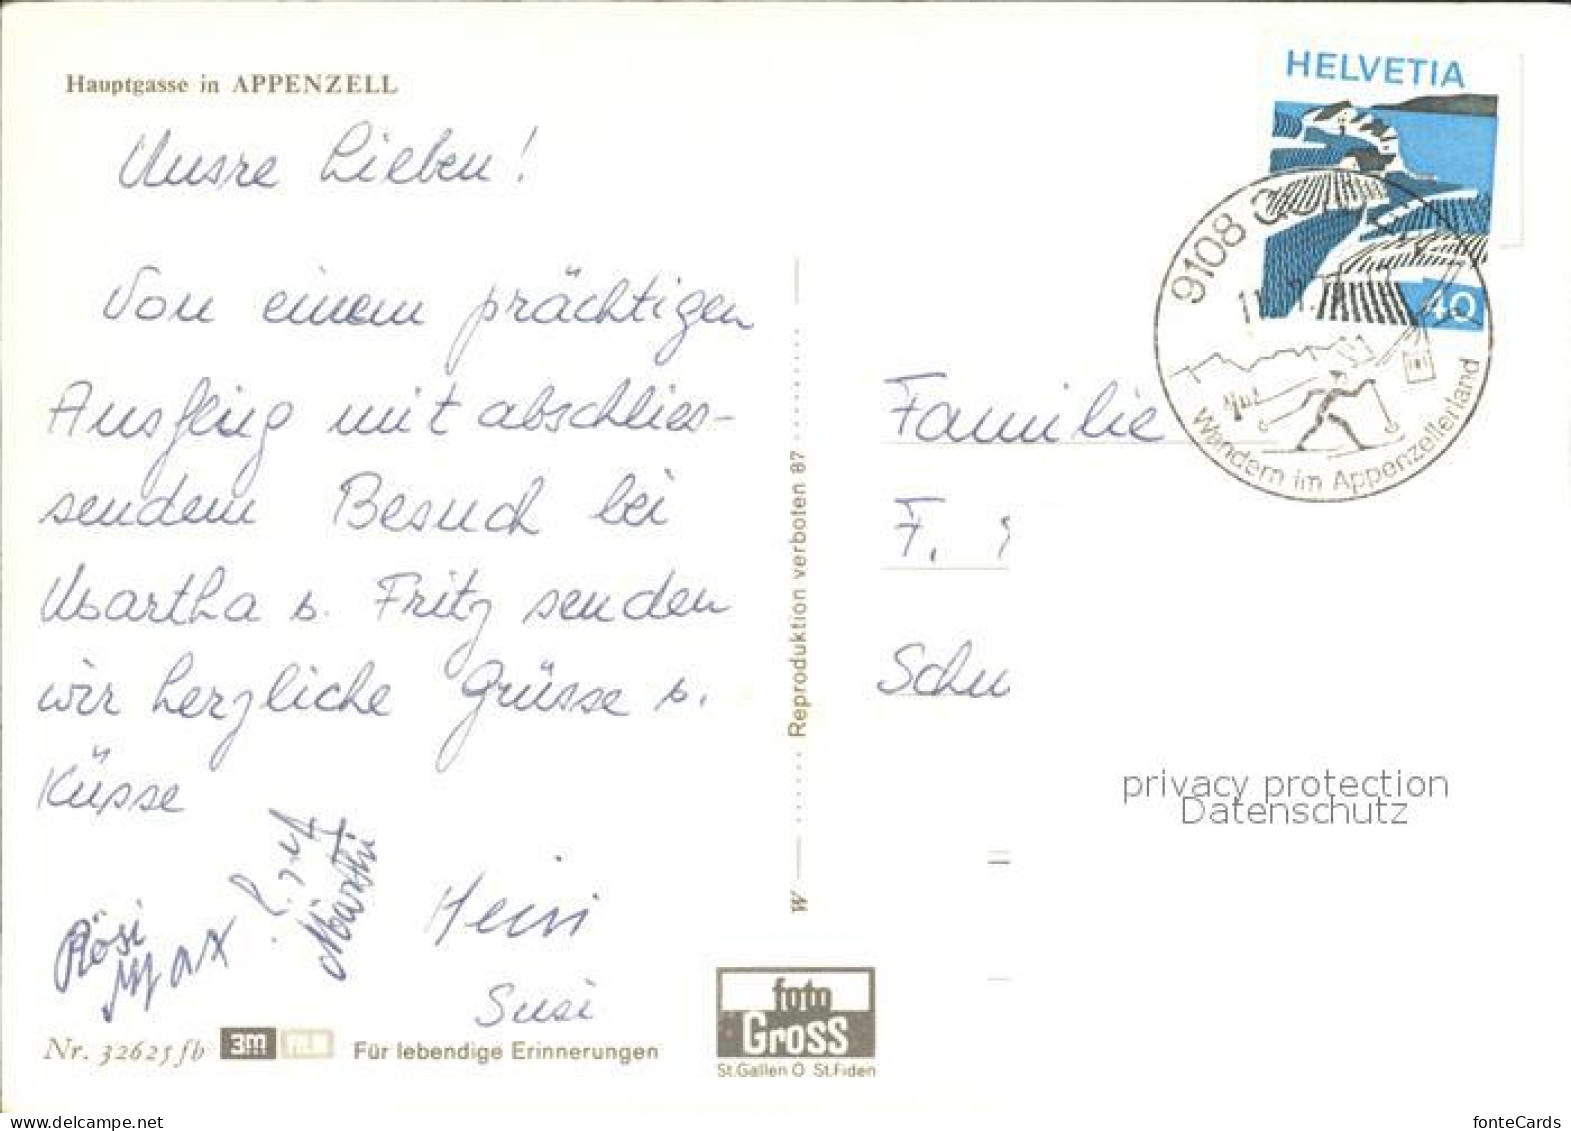 Hauptgasse in APPENZELL
Unsre Lieben!
Von einem prächtigen
Ausflug mit abschlies-
sendem Besuch bei
Martha u. Fritz senden
wir herzliche Grüsse u.
Küsse
Rösi
Max
Marthi
Heini
Susi
Nr. 32625 fb
3M
Für lebendige Erinnerungen
foto
Gross
St.Gallen O St.Fiden
W
Reproduktion verboten 87
HELVETIA
40
9108
Wandern im Appenzellerland
Familie
F.
Schu
privacy protection
Datenschutz
www.delcampe.net
fonteCards